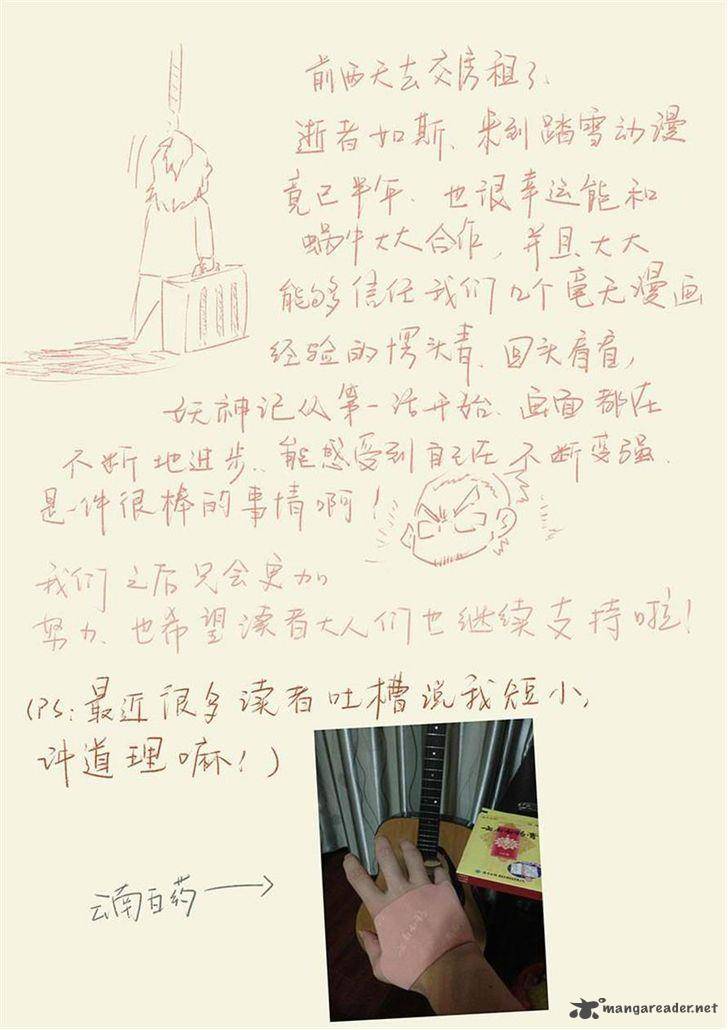 前两天去交房租了、
逝者如斯、来到踏雪动漫
竟已半年、也很幸运能和
蜗牛大大合作，并且大大
能够信任我们几个毫无漫画
经验的愣头青、回头看看，
妖神记从第一话开始、画面都在
不断地进步、能感受到自己在不断变强、
是一件很棒的事情啊！
我们之后只会更加
努力、也希望读者大人们也继续支持啦！
(PS:最近很多读者吐槽说我短小，
讲道理嘛！)
云南白药
mangareader.net